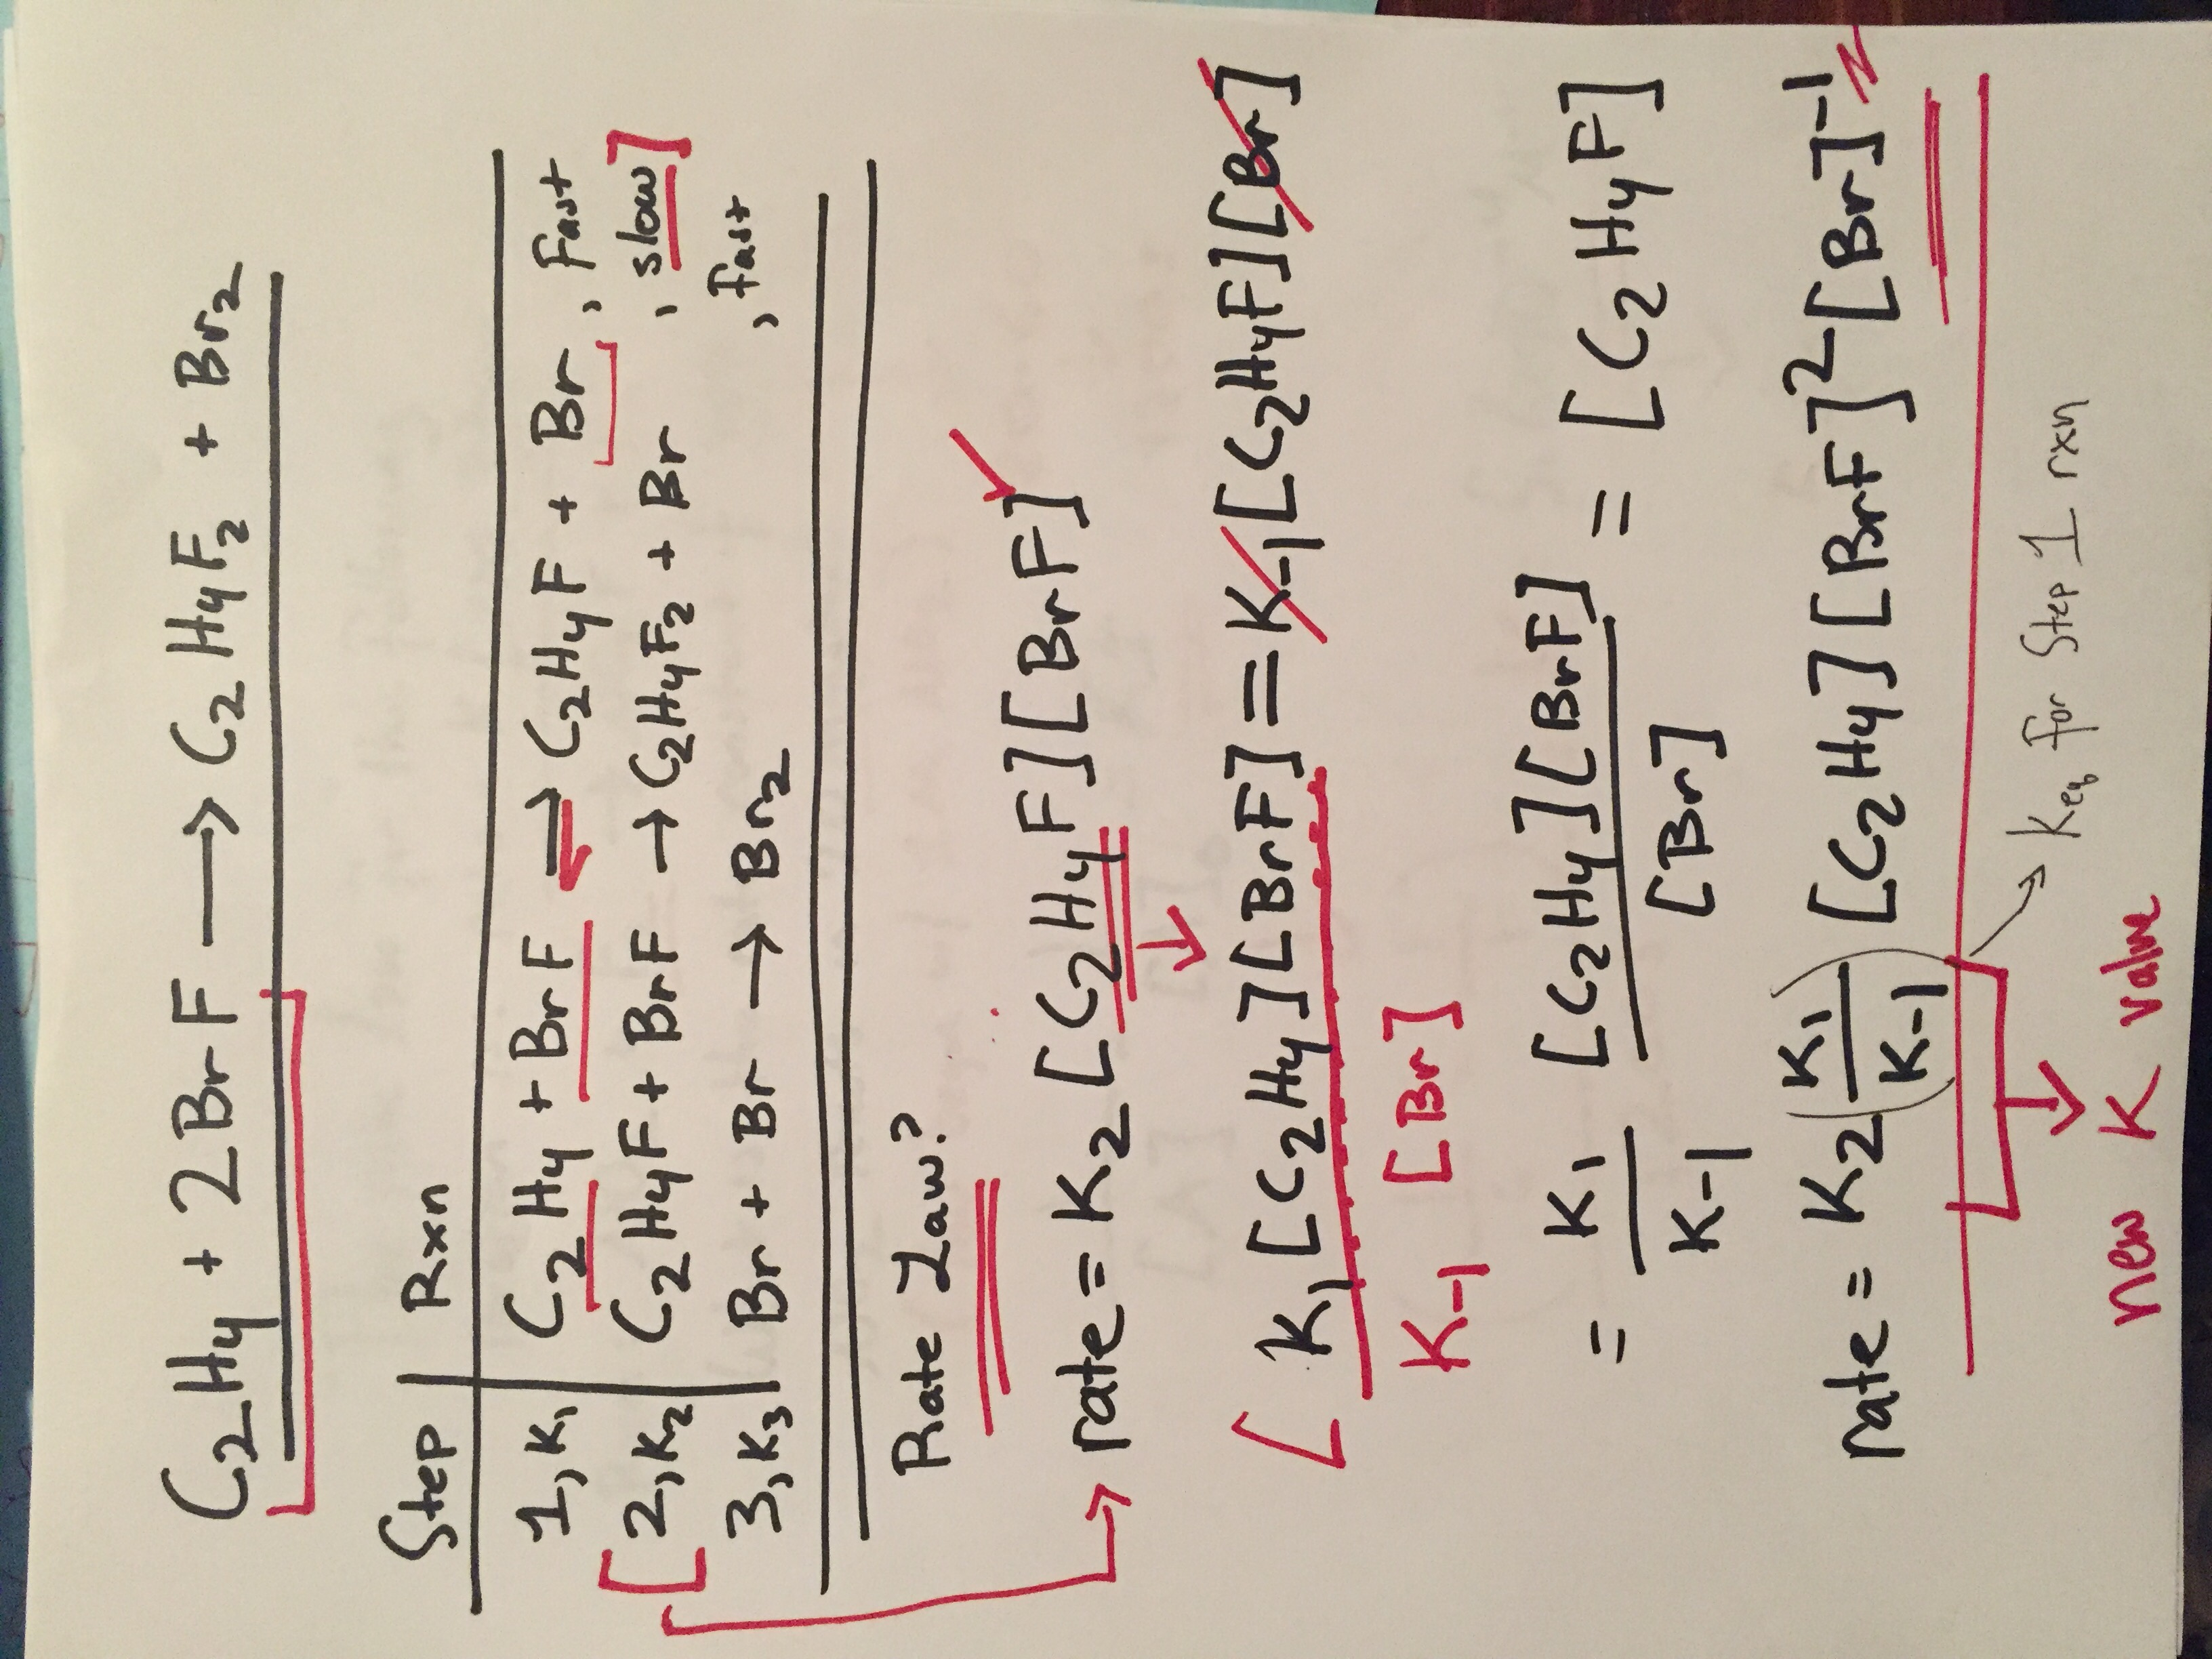 C₂H₄ + 2BrF → C₂H₄F₂ + Br₂
Step | Rxn
1, K₁ | C₂H₄ + BrF ⇌ C₂H₄F + Br, Fast
[2, K₂ | C₂H₄F + BrF → C₂H₄F₂ + Br, slow]
3, K₃ | Br + Br → Br₂, fast
Rate Law?
rate = K₂ [C₂H₄F][BrF]
[K₁[C₂H₄][BrF] = K₋₁[C₂H₄F][Br]
K₋₁ [Br]
= K₁/K₋₁ [C₂H₄][BrF]/[Br] = [C₂H₄F]
rate = K₂(K₁/K₋₁) [C₂H₄][BrF]²[Br]⁻¹
Keq for Step 1 rxn
new K value